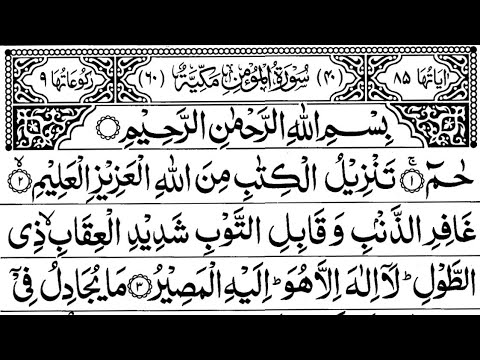 اٰیَاتُهَا ٨٥ (٤٠) سُوْرَةُ الْمُؤْمِنِ مَكِّيَّةٌ (٦٠) رُكُوْعَاتُهَا ٩
بِسْمِ اللّٰهِ الرَّحْمٰنِ الرَّحِيْمِ
حٰمٓ ۚ‏﴿۱﴾ تَنْزِيْلُ الْكِتٰبِ مِنَ اللّٰهِ الْعَزِيْزِ الْعَلِيْمِ ۙ‏﴿۲﴾
غَافِرِ الذَّنْۢبِ وَ قَابِلِ التَّوْبِ شَدِيْدِ الْعِقَابِ ۙ ذِى
الطَّوْلِ ؕ لَاۤ اِلٰهَ اِلَّا هُوَ ؕ اِلَيْهِ الْمَصِيْرُ ﴿۳﴾ مَا يُجَادِلُ فِىْۤ